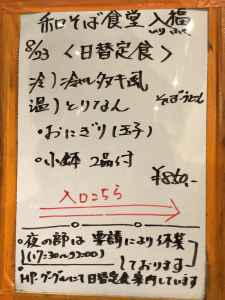 和そば食堂 入福
8/23 〈日替定食〉
冷)冷やしタヌキ風
温)とりなん
そばorうどん
・おにぎり(玉子)
・小鉢 2品付
¥850.-
入口こちら
・夜の部は 要請により休業
(17:30〜22:00) しております
HP・グーグルにて日替定食案内しています